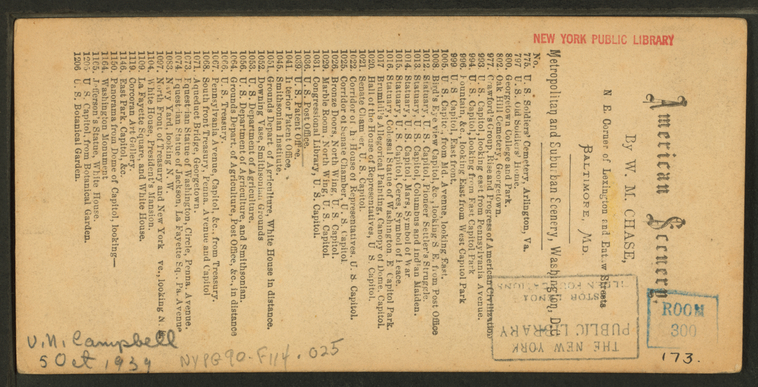 NEW YORK PUBLIC LIBRARY
American Scenery
By W. M. CHASE,
N E. Corner of Lexington and Eutaw Streets
BALTIMORE, MD.
Metropolitan and Suburban Scenery, Washington, D.C.
No.
775. U. S. Soldiers' Cemetery, Arlington, Va.
797 U. S. Old Soldiers' Home.
800. Georgetown College and Park.
802 Oak Hill Cemetery, Georgetown.
977 Crawford's Group, Rise and Progress of American Civilization
993 U. S. Capitol, looking east from Pennsylvania Avenue.
994 U. S. Capitol, looking from East Capitol Park
998 Fountain, &c., looking East from West Capitol Park
999 U. S. Capitol, East Front.
1006. U. S. Capitol, from Md. Avenue, looking East.
1008 Bird's Eye view, Capitol, &c., looking S E. from Post Office
1012 Statuary, U. S. Capitol, Pioneer Settler's Struggle.
1013 Statuary, U. S. Capitol, Columbus and Indian Maiden.
1014 Statuary, U. S. Capitol, Mars, Symbol of War
1015 Statuary, U. S. Capitol, Ceres, Symbol of Peace.
1016 Statuary, Colossal Statue of Washington, E. Capitol Park
1017 Brumidi's Allegorical Painting, Canopy of Dome, Capitol.
1020 Hall of the House of Representatives, U S. Capitol.
1021 Senate Chamber, U. S. Capitol.
1022. Corridor of House of Representatives, U. S. Capitol.
1025 Corridor of Senate Chamber, U. S. Capitol
1026 Bronze Doors, North Wing, U. S. Capitol.
1029 Marble Room, North Wing, U. S. Capitol.
1031 Congressional Library, U. S. Capitol.
1036. U. S. Post Office.
1038. U. S. Patent Office.
1041 Interior Patent Office.
1045. Smithsonian Institute.
1051. Grounds Depart. of Agriculture, White House in distance.
1052 Downing Vase, Smithsonian Grounds
1053. U. S. Department of Agriculture.
1056. U. S. Department of Agriculture, and Smithsonian.
1064. Grounds Depart. of Agriculture, Post Office, &c., in distance
U. S. Treasury.
1067 Pennsylvania Avenue, Capitol, &c., from Treasury.
1068. South Front Treasury, Penna. Avenue and Capitol
1071. Aqueduct Bridge, Georgetown.
1073. Equestrian Statue of Washington, Circle, Penna. Avenue.
1074 Equestrian Statue of Jackson, La Fayette Sq., Pa. Avenue
1097. North Front of Treasury and New York looking N
1104. White House, President's Mansion.
1109. La Fayette Square, and White House.
1119. Corcoran Art Gallery.
1145. East Park, Capitol, &c.
1150. Panorama from Dome of Capitol, looking—
1164. Washington Monument
1165. Jefferson's Statue, White House.
1205 U. S. Capitol, from Botanical Garden.
1206 U. S. Botanical Garden.
THE NEW YORK
PUBLIC LIBRARY
ASTOR LENOX
TILDEN FOUNDATIONS
ROOM
300
173.
V. N. Campbell
5 Oct 1934
NYPG90-F114.025